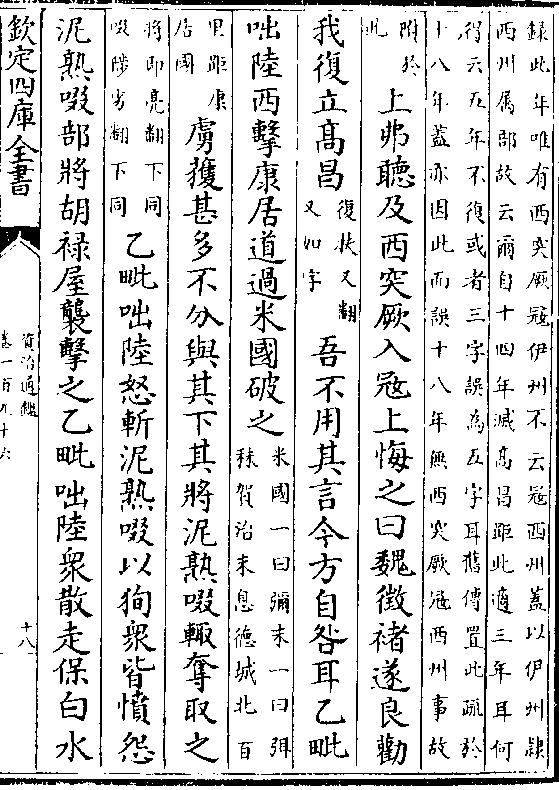 録此年唯有西突厥冦伊州不云冦西州蓋以伊州隸
西州属部故云爾自十四年滅髙昌距此適三年耳何
得云五年不復或者三字誤為五字耳舊傳置此疏於
十八年蓋亦因此而誤十八年無西突厥冦西州事故
附於
此
上弗聽及西突厥入冦上悔之曰魏徵禇遂良勸
我復立髙昌
復扶又翻
又如字
吾不用其言今方自咎耳乙毗
咄陸西擊康居道過米國破之
米國一曰彌末一曰弭
秣賀治末息德城北百
里距康
居國
虜獲甚多不分與其下其將泥熟啜輒奪取之
將即亮翻下同
啜陟劣翻下同
乙毗咄陸怒斬泥熟啜以狥衆皆憤怨
泥熟啜部將胡禄屋襲擊之乙毗咄陸衆散走保白水
欽定四庫全書
資治通鑑
卷一百九十六
十八